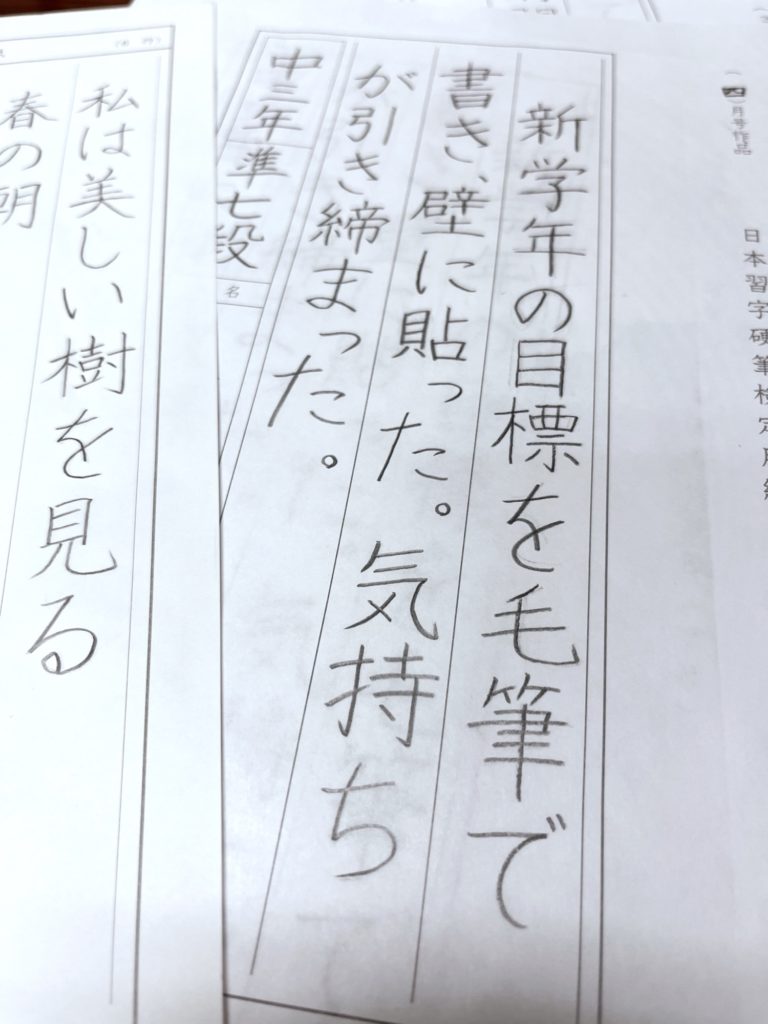 (四)月号作品
日本習字硬筆検定用
新学年の目標を毛筆で
書き、壁に貼った。気持ち
が引き締まった。
中三年 準七段
名
私は美しい樹を見る
春の朝